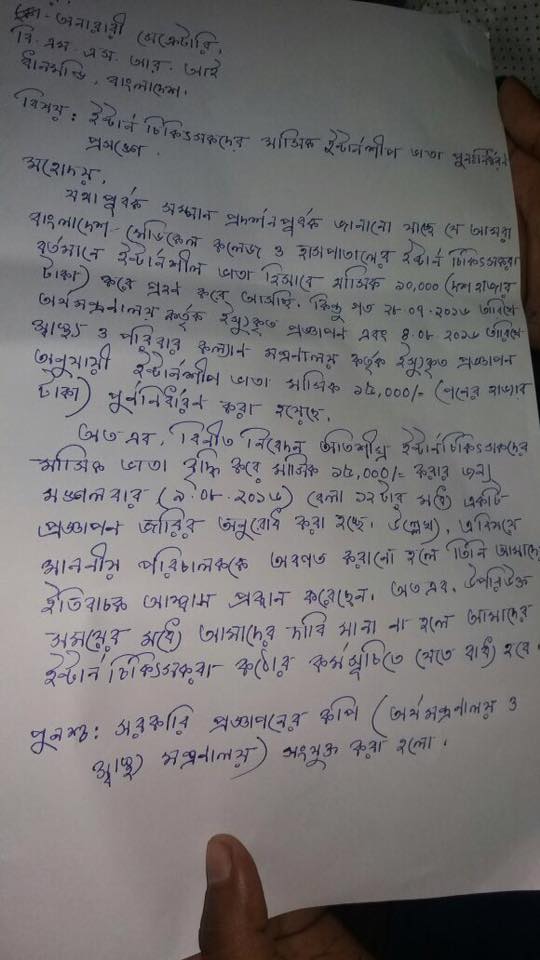 অনারারী সেক্রেটারি,
বি. এম. এস. আর. আই
ধানমন্ডি, বাংলাদেশ।
বিষয়: ইন্টার্ন চিকিৎসকদের মাসিক ইন্টার্নশীপ ভাতা পুনর্নির্ধারন
প্রসঙ্গে।
মহোদয়,
যথাপূর্বক সম্মান প্রদর্শনপূর্বক জানানো যাচ্ছে যে আমরা
বাংলাদেশ মেডিকেল কলেজ ও হাসপাতালের ইন্টার্ন চিকিৎসকরা
বর্তমানে ইন্টার্নশীপ ভাতা হিসাবে মাসিক ১০,০০০ (দশ হাজার
টাকা) করে গ্রহন করে আসছি. কিন্তু গত ২৮.০৭.২০১৬ তারিখে
অর্থমন্ত্রনালয় কর্তৃক ইস্যুকৃত প্রজ্ঞাপন এবং ৪.০৮.২০১৬ তারিখে
স্বাস্থ্য ও পরিবার কল্যান মন্ত্রনালয় কর্তৃক ইস্যুকৃত প্রজ্ঞাপন
অনুযায়ী ইন্টার্নশীপ ভাতা মাসিক ১৫,০০০/= (পনের হাজার
টাকা) পুর্ননির্ধারন করা হয়েছে.
অত এব, বিনীত নিবেদন অতিশীঘ্র ইন্টার্ন চিকিৎসকদের
মাসিক ভাতা বৃদ্ধি করে মাসিক ১৫,০০০/= করার জন্য
মঙ্গলবার (৯.০৮.২০১৬) বেলা ১২টার মধ্যে একটি
প্রজ্ঞাপন জারির অনুরোধ করা হচ্ছে. উল্লেখ্য, এ বিষয়ে
মাননীয় পরিচালককে অবগত করানো হলে তিনি আমাদের
ইতিবাচক আশ্বাস প্রদান করেছেন. অত এব, উপরিউক্ত
সময়ের মধ্যে আমাদের দাবি মানা না হলে আমাদের
ইন্টার্ন চিকিৎসকরা কঠোর কর্মসূচিতে যেতে বাধ্য হবে।
পুনশ্চ: সরকারি প্রজ্ঞাপনের কপি (অর্থমন্ত্রনালয় ও
স্বাস্থ্য মন্ত্রনালয়) সংযুক্ত করা হলো.